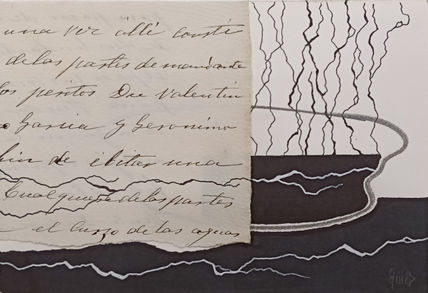 una vez allí consti
de las partes de mandante
los peritos Don Valentin
Garcia y Geronimo
fin de ebitar una
Cualquiera de las partes
el curso de las aguas